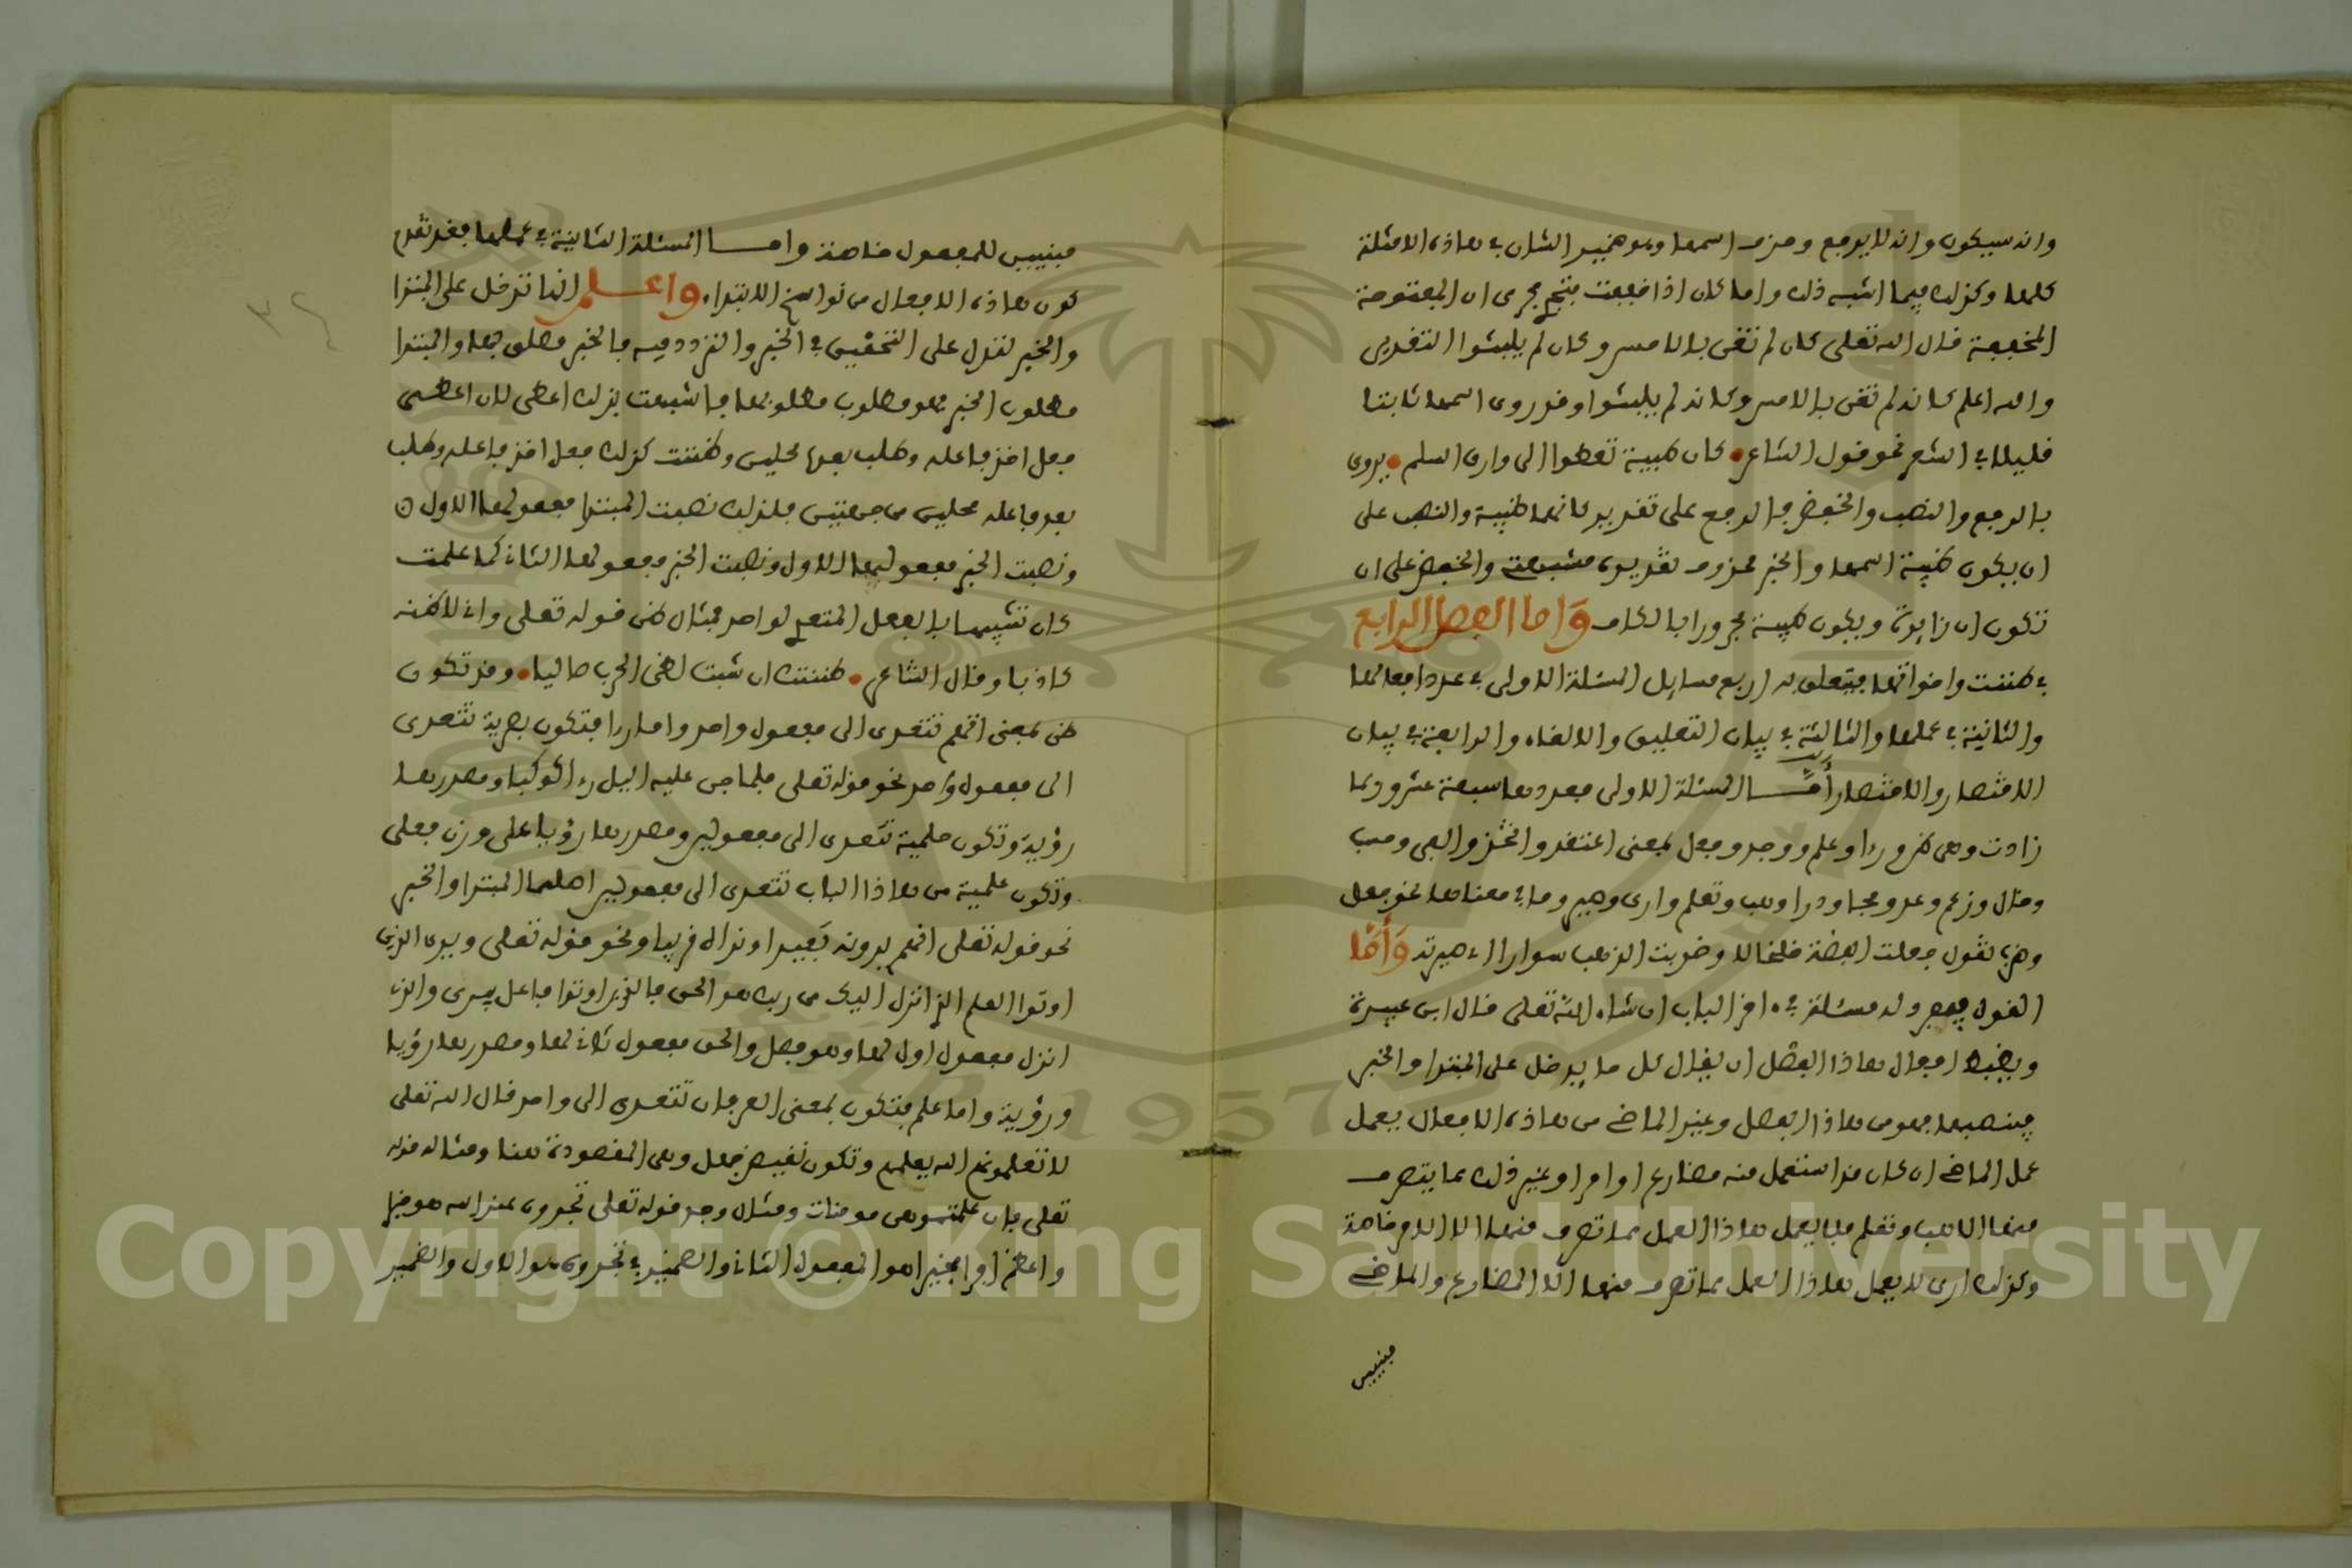 وانه سيكون وانه لا يرجع وحذف اسمها وهو ضمير الشان في هاذه الامثلة
كلها وكذلك فيما اشبه ذلك واما كان اذا خففت فتجري مجرى ان المفتوحة
المخففة قال الله تعلى كان لم تغن بالامس وكان لم يلبثوا التقدير
والله اعلم كانه لم تغن بالامس وكانه لم يلبثوا وقد روى اسمها ثابتا
قليلا في الشعر نحو قول الشاعر كان ظبية تعطوا الى وارق السلم يروى
بالرفع والنصب والخفض فالرفع على تقدير كانها ظبية والنصب على
ان يكون ظبية اسمها والخبر محذوف تقديره مشبهة والخفض على ان
تكون ان زايدة ويكون ظبية مجرورا بالكاف واما الفصل الرابع
في ظننت واخواتها فيتعلق به اربع مسايل المسئلة الاولى في عدد افعالها
والثانية في عملها والثالثة في بيان التعليق والالغاء والرابعة في بيان
الاقتصار والاختصار أما المسئلة الاولى فعددها سبعة عشر وربما
زادت وهي ظن ورءا وعلم ووجد وجعل بمعنى اعتقد واتخذ والفى وحسب
وخال وزعم وعد وحجا ودرا وهب وتعلم وارى وصير وما في معناها نحو جعل
وضرب تقول جعلت الفضة خلخالا وضربت الذهب سوارا اي صيرته وأما
القول وله مسئلة في ءاخر الباب ان شاء الله تعلى قال ابن عبيدة
ويضبط افعال هاذا الفصل ان يقال كل ما يدخل على المبتدا والخبر
فينصبهما فهو من هاذا الفصل وغير الماضي من هاذه الافعال يعمل
عمل الماضي ان كان قد استعمل منه مضارع او امر او غير ذلك مما يتصرف
منها الا هب وتعلم فلا يعمل هاذا العمل مما تصرف منهما الا الامر خاصة
وكذلك ارى لا يعمل هاذا العمل مما تصرف منها الا المضارع والماضي
مبنيين
مبنيين للمفعول خاصة واما المسئلة الثانية في عملها فقد تقدم
كون هاذه الافعال من نواسخ الابتداء واعلم انها تدخل على المبتدا
والخبر لتدل على التحقيق في الخبر والتردد فيه فالخبر مطلوب لها والمبتدا
مطلوب الخبر فهو مطلوب مطلوبها فاشبهت بذلك اعطى لان اعطى
فعل اخذ فاعله وطلب بعده محلين وظننت كذلك فعل اخذ فاعله وطلب
بعد فاعله محلين من جهتين فلذلك نصبت المبتدا مفعولها الاول
ونصبت الخبر مفعولها الاول ونصبت الخبر مفعولها الثاني كما علمت
كان تشبيها بالفعل المتعدي لواحد فمثال ظن قوله تعلى واني لاظنه
كاذبا وقال الشاعر ظننتك ان شبت لظى الحرب صاليا وقد تكون
ظن بمعنى اتهم تتعدى الى مفعول واحد واما رءا فتكون بصرية تتعدى
الى مفعول واحد نحو قوله تعلى فلما جن عليه اليل رءا كوكبا ومصدرها
رؤية وتكون حلمية تتعدى الى مفعولين ومصدرها رؤيا على وزن فعلى
وتكون علمية من هاذا الباب تتعدى الى مفعولين اصلهما المبتدا والخبر
نحو قوله تعلى انهم يرونه بعيدا ونراه قريبا ونحو قوله تعلى ويرى الذين
اوتوا العلم الذي انزل اليك من ربك هو الحق فالذين اوتوا فاعل يرى والذي
انزل مفعول اول لها وهو فصل والحق مفعول ثاني لها ومصدرها رؤيا
ورؤية واما علم فتكون بمعنى العرفان تتعدى الى واحد قال الله تعلى
لا تعلمونهم الله يعلمهم وتكون نقيض جهل وهي المقصودة هنا ومثاله قوله
تعلى فان علمتموهن مومنات ومثال وجد قوله تعلى تجدوه عند الله هو خيرا
واعظم اجرا فخيرا هو المفعول الثاني والضمير في تجدوه هو الاول والضمير
Copyright © King Saud University
1957